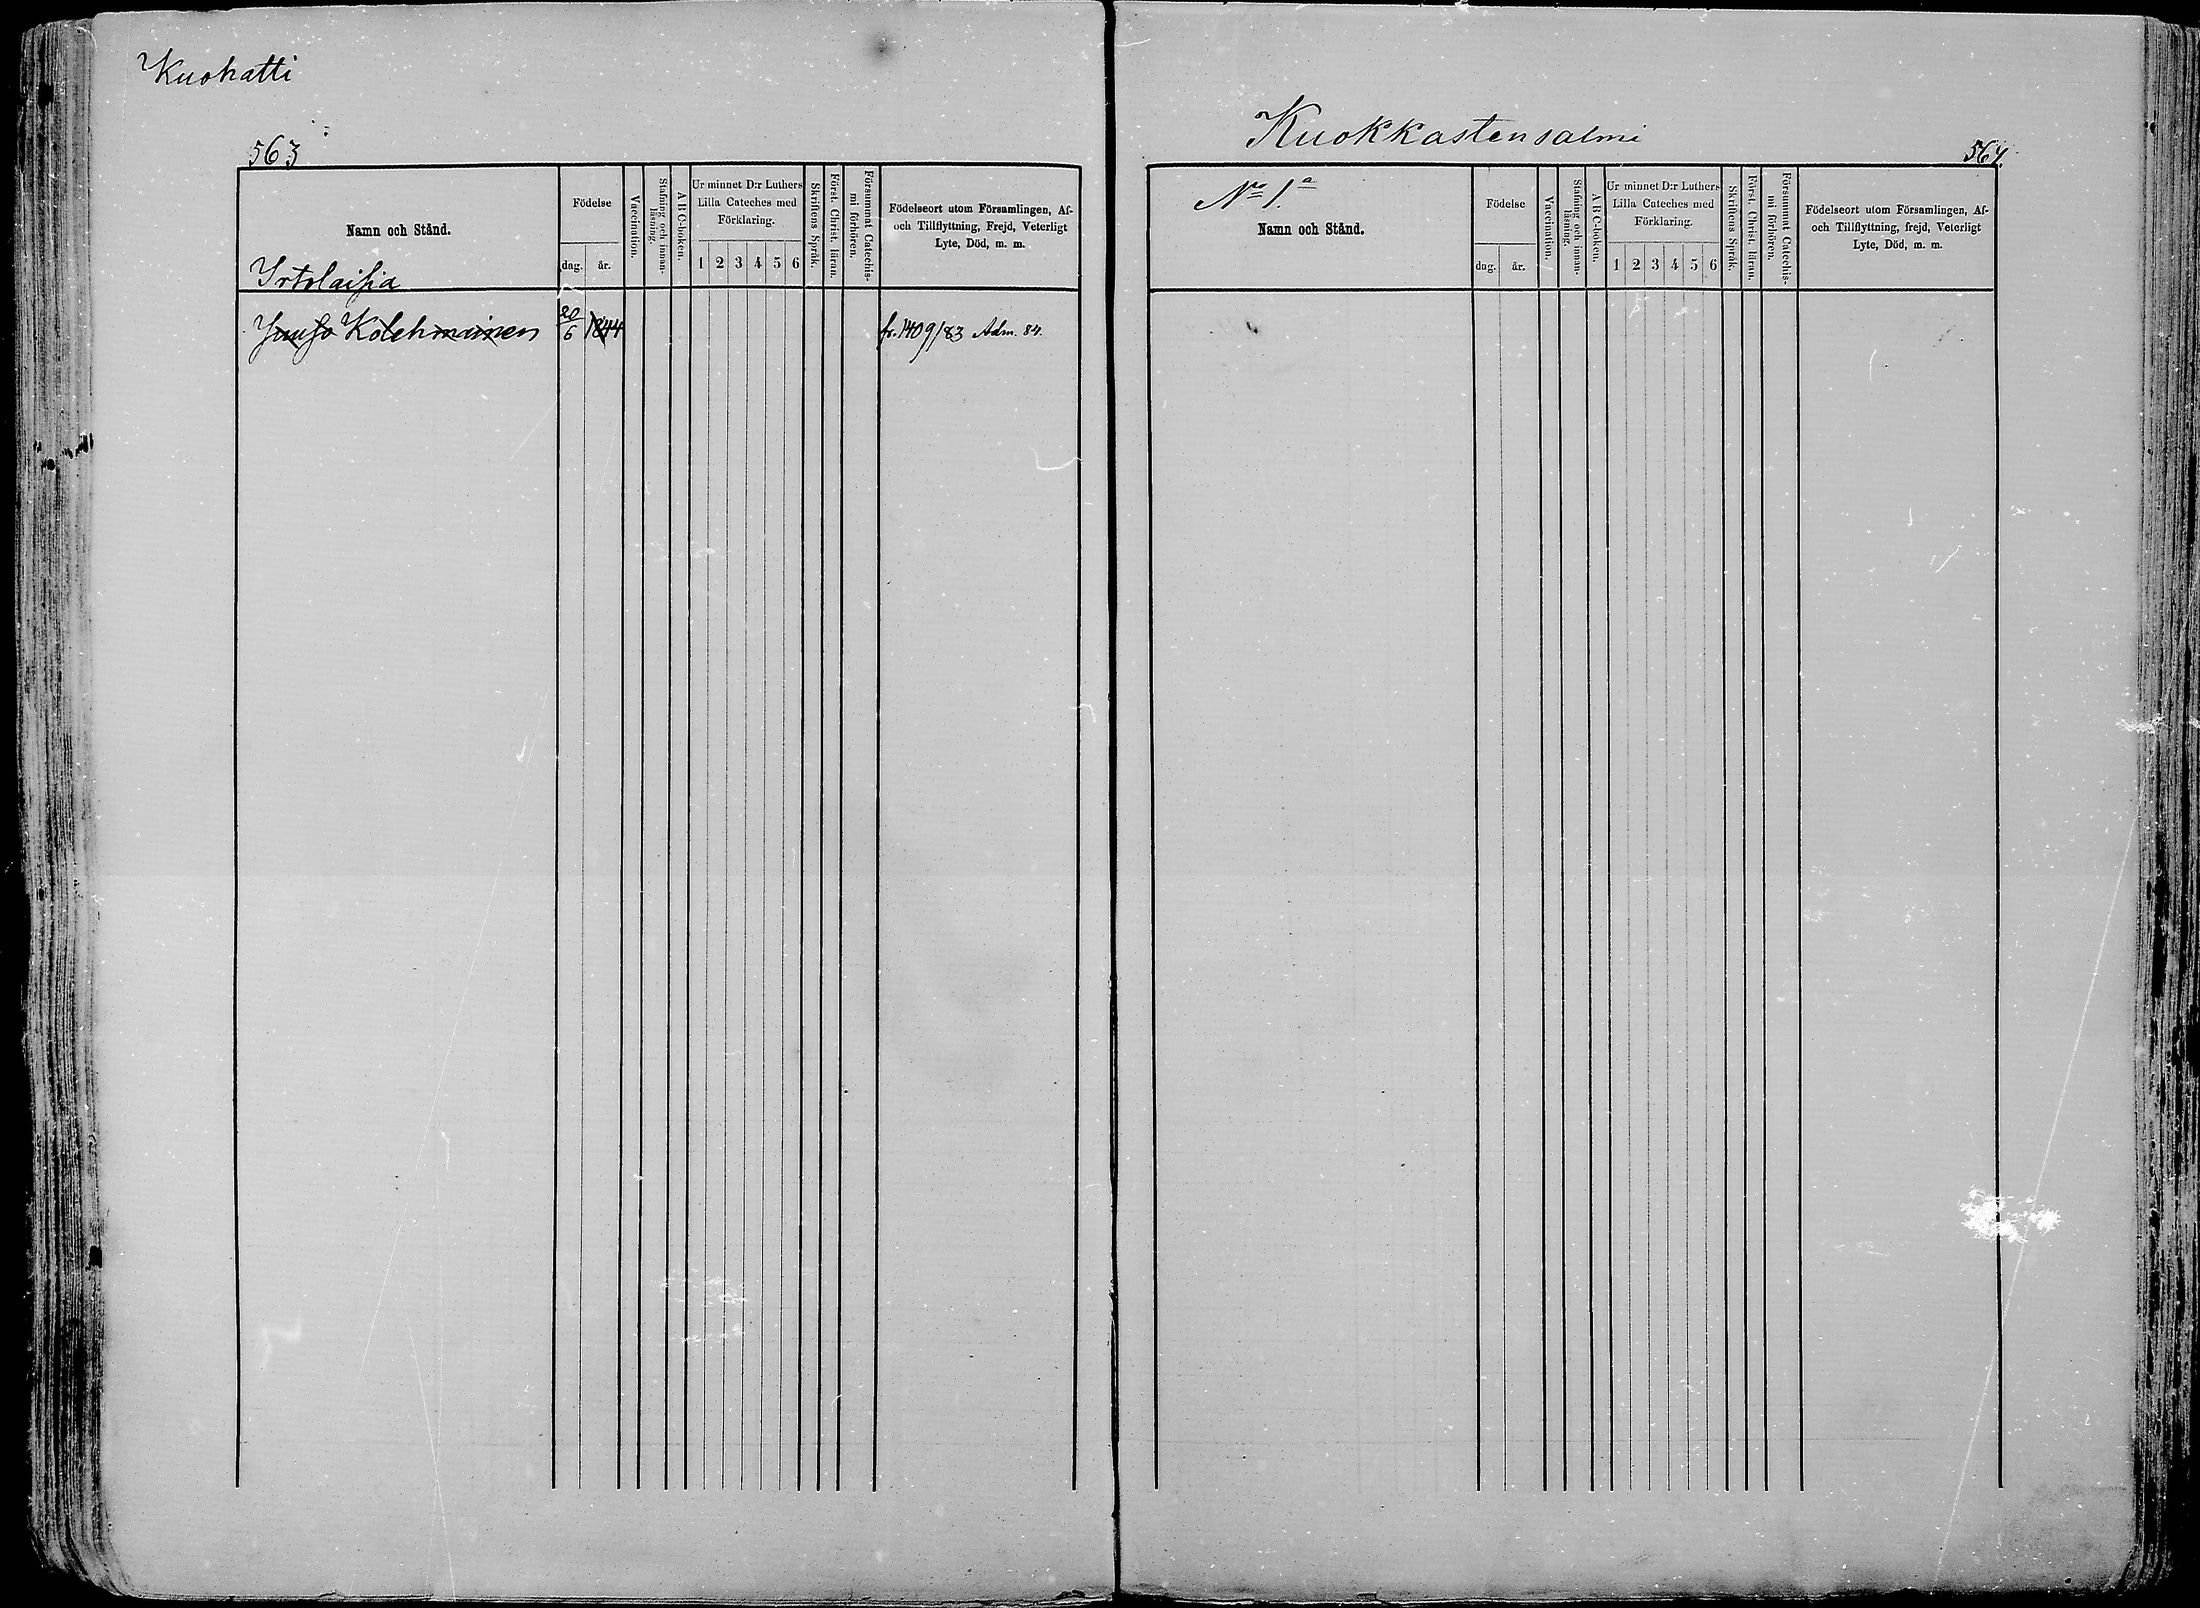 Kuohatti
563
Namn och Stånd.
Irtolaisia
Födelse
dag.
år.
Vaccination.
Stafning och innan-
läsning.
A B C-boken.
Ur minnet D:r Luthers
Lilla Cateches med
Förklaring.
1 2 3 4 5 6
Skriftens Språk.
Först. Christ. läran.
Försummat Catechis-
mi förhören.
Födelseort utom Församlingen, Af-
och Tillflyttning, Frejd, Veterligt
Lyte, Död, m. m.
Juuso Kolehmainen 20/6 1844 fr. 1409/83 Adm. 84.
Kuokkastensalmi
564.
No 1.a
Namn och Stånd.
Födelse
dag.
år.
Vaccination.
Stafning och innan-
läsning.
A B C-boken.
Ur minnet D:r Luthers
Lilla Cateches med
Förklaring.
1 2 3 4 5 6
Skriftens Språk.
Först. Christ. läran.
Försummat Catechis-
mi förhören.
Födelseort utom Församlingen, Af-
och Tillflyttning, frejd, Veterligt
Lyte, Död, m. m.